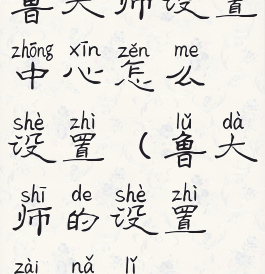 鲁大师设置
zhōng xīn zěn me
中心怎么
shè zhì lǔ dà
设置（鲁大
shī de shè zhì
师的设置
zài nǎ lǐ